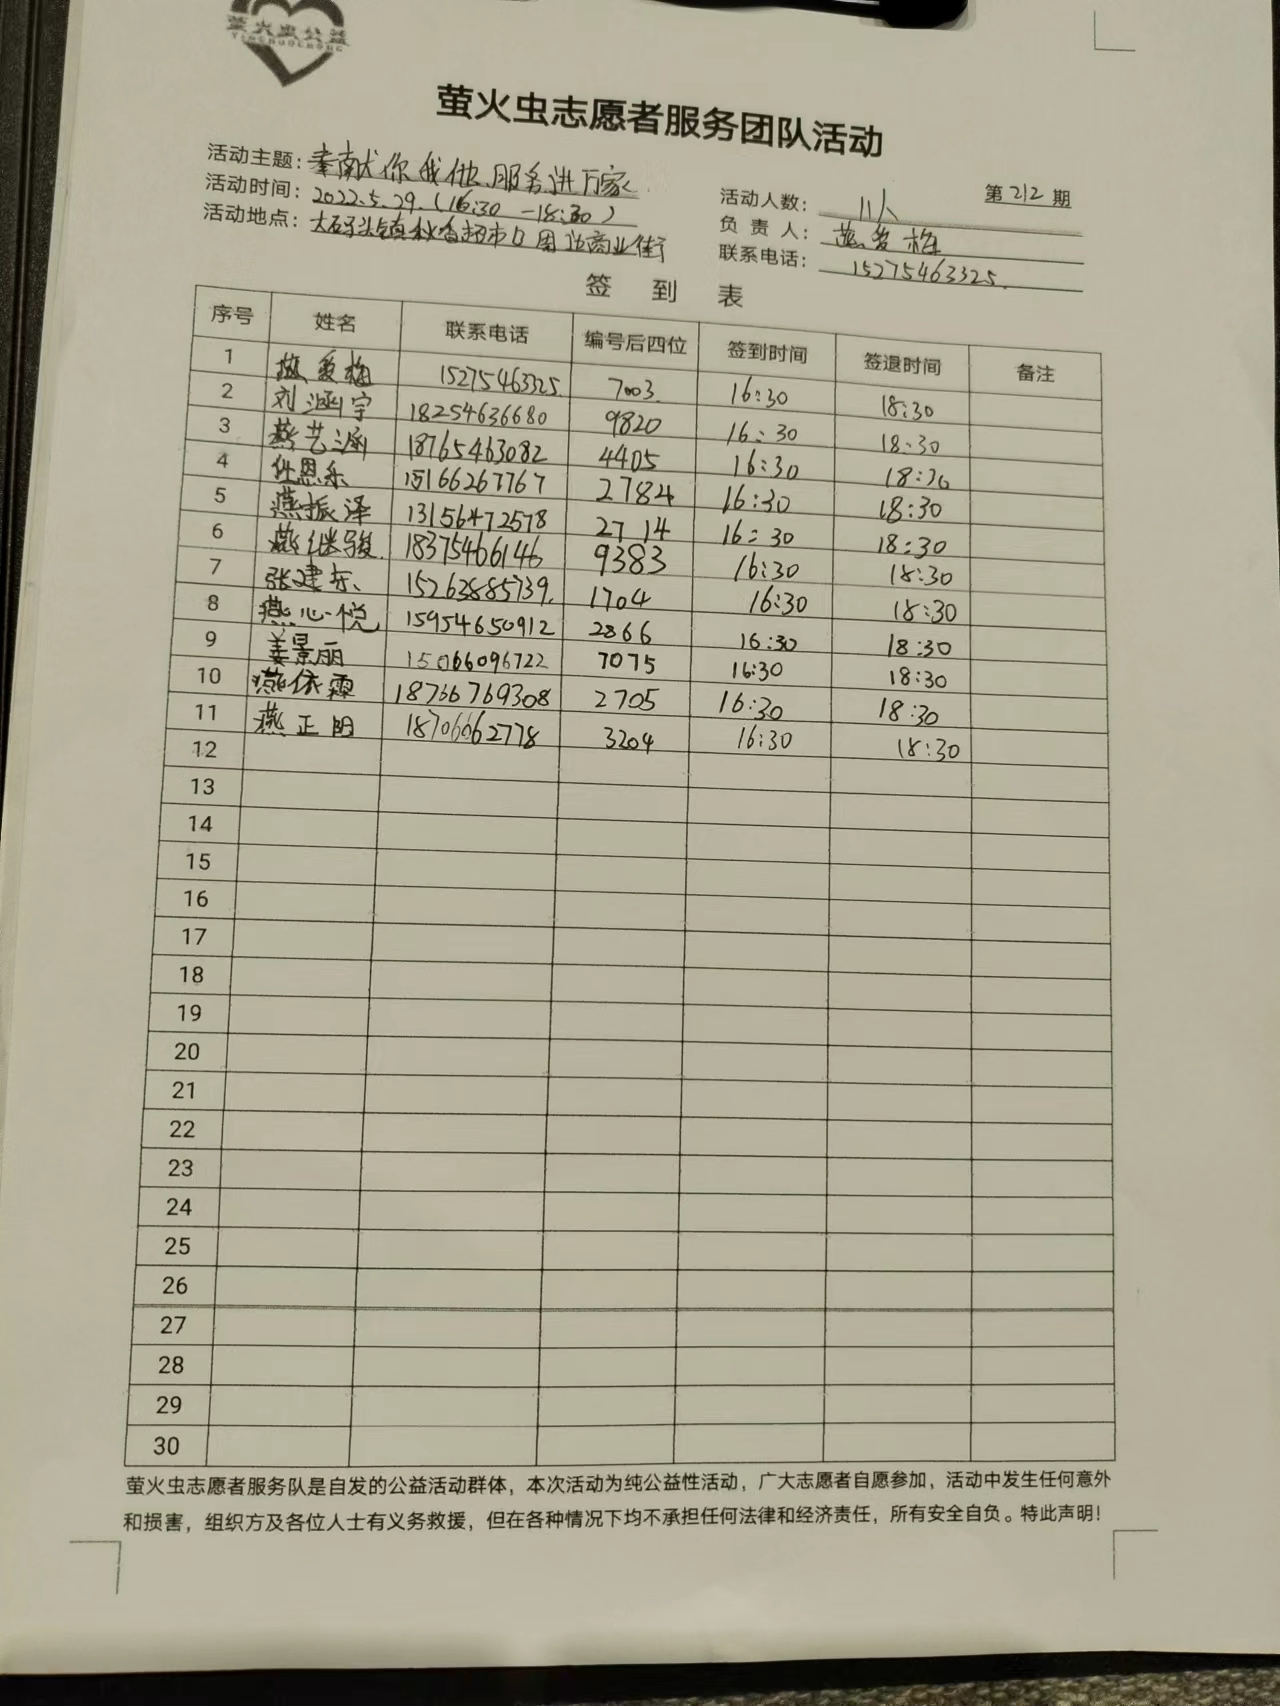 萤火虫公益
YINGHUOCHONG
萤火虫志愿者服务团队活动
第212期
活动主题：奉献你我他、服务进万家
活动时间：2022.5.29.（16:30－18:30）
活动地点：大码头镇秋香超市口 周边商业街
活动人数：11人
负责人：燕爱梅
联系电话：15275463325.
签到表
序号 姓名 联系电话 编号后四位 签到时间 签退时间 备注
1 燕爱梅 15275463325. 7003. 16:30 18:30
2 刘涵宇 18254636680 9820 16:30 18:30
3 燕艺涵 18765463082 4405 16:30 18:30
4 任恩乐 15166267767 2784 16:30 18:30
5 燕振泽 13156472578 2714 16:30 18:30
6 燕继骏 18375466146 9383 16:30 18:30
7 张建东、 15263885739. 1704 16:30 18:30
8 燕心悦 15954650912 2866 16:30 18:30
9 姜景丽 15066096722 7075 16:30 18:30
10 燕依霖 18766769308 2705 16:30 18:30
11 燕正阳 18706662778 3204 16:30 18:30
12
13
14
15
16
17
18
19
20
21
22
23
24
25
26
27
28
29
30
萤火虫志愿者服务队是自发的公益活动群体，本次活动为纯公益性活动，广大志愿者自愿参加，活动中发生任何意外
和损害，组织方及各位人士有义务救援，但在各种情况下均不承担任何法律和经济责任，所有安全自负。特此声明！